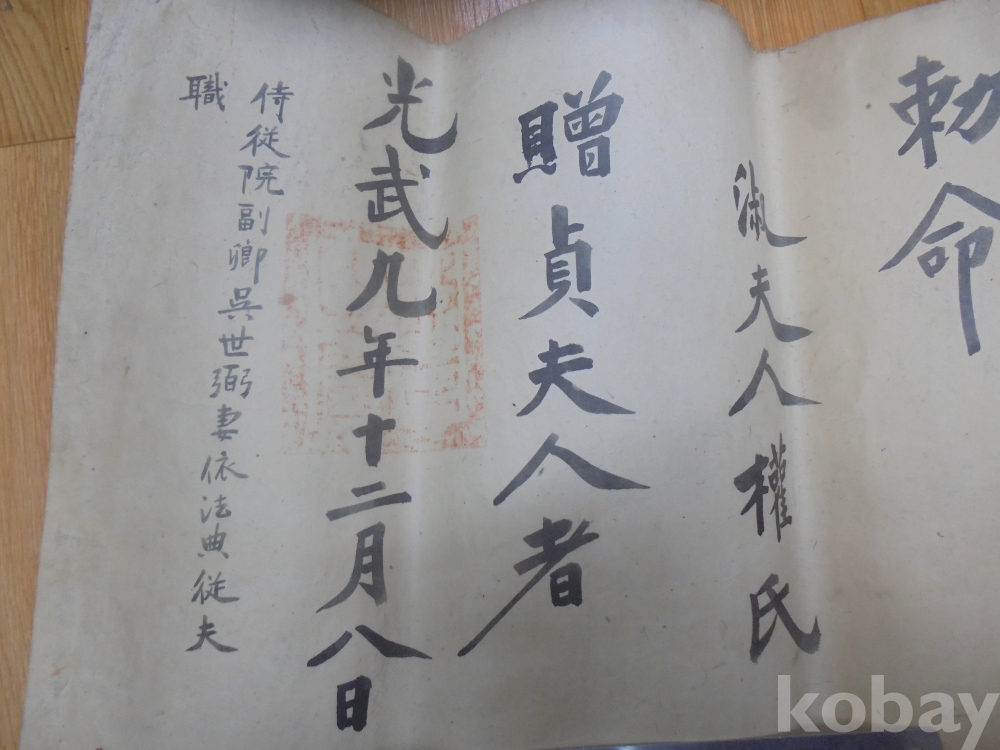 勅命
淑夫人權氏
贈貞夫人者
光武九年十二月八日
侍從院副卿吳世弼妻依法典從夫
職
kobay